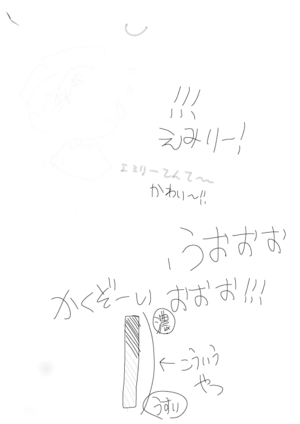 !!!
えみりー!
エミリーてんて〜
かわい〜!!
うおおお
かくぞーい おおお!!!
濃
←こういう
やつ
うすい